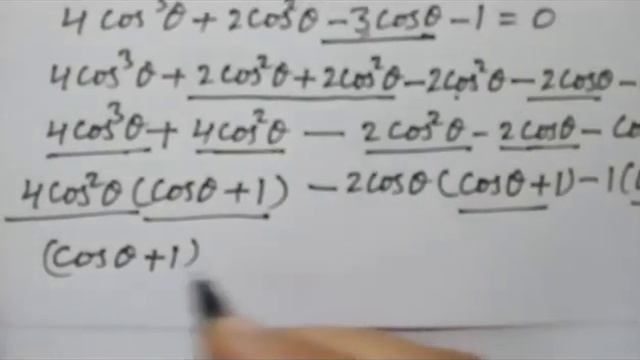 4cos³θ + 2cos²θ - 3cosθ - 1 = 0
4cos³θ + 2cos²θ + 2cos²θ - 2cos²θ - 2cosθ -
4cos³θ + 4cos²θ - 2cos²θ - 2cosθ - co
4cos²θ (cosθ + 1) - 2cosθ (cosθ + 1) - 1(
(cosθ + 1)